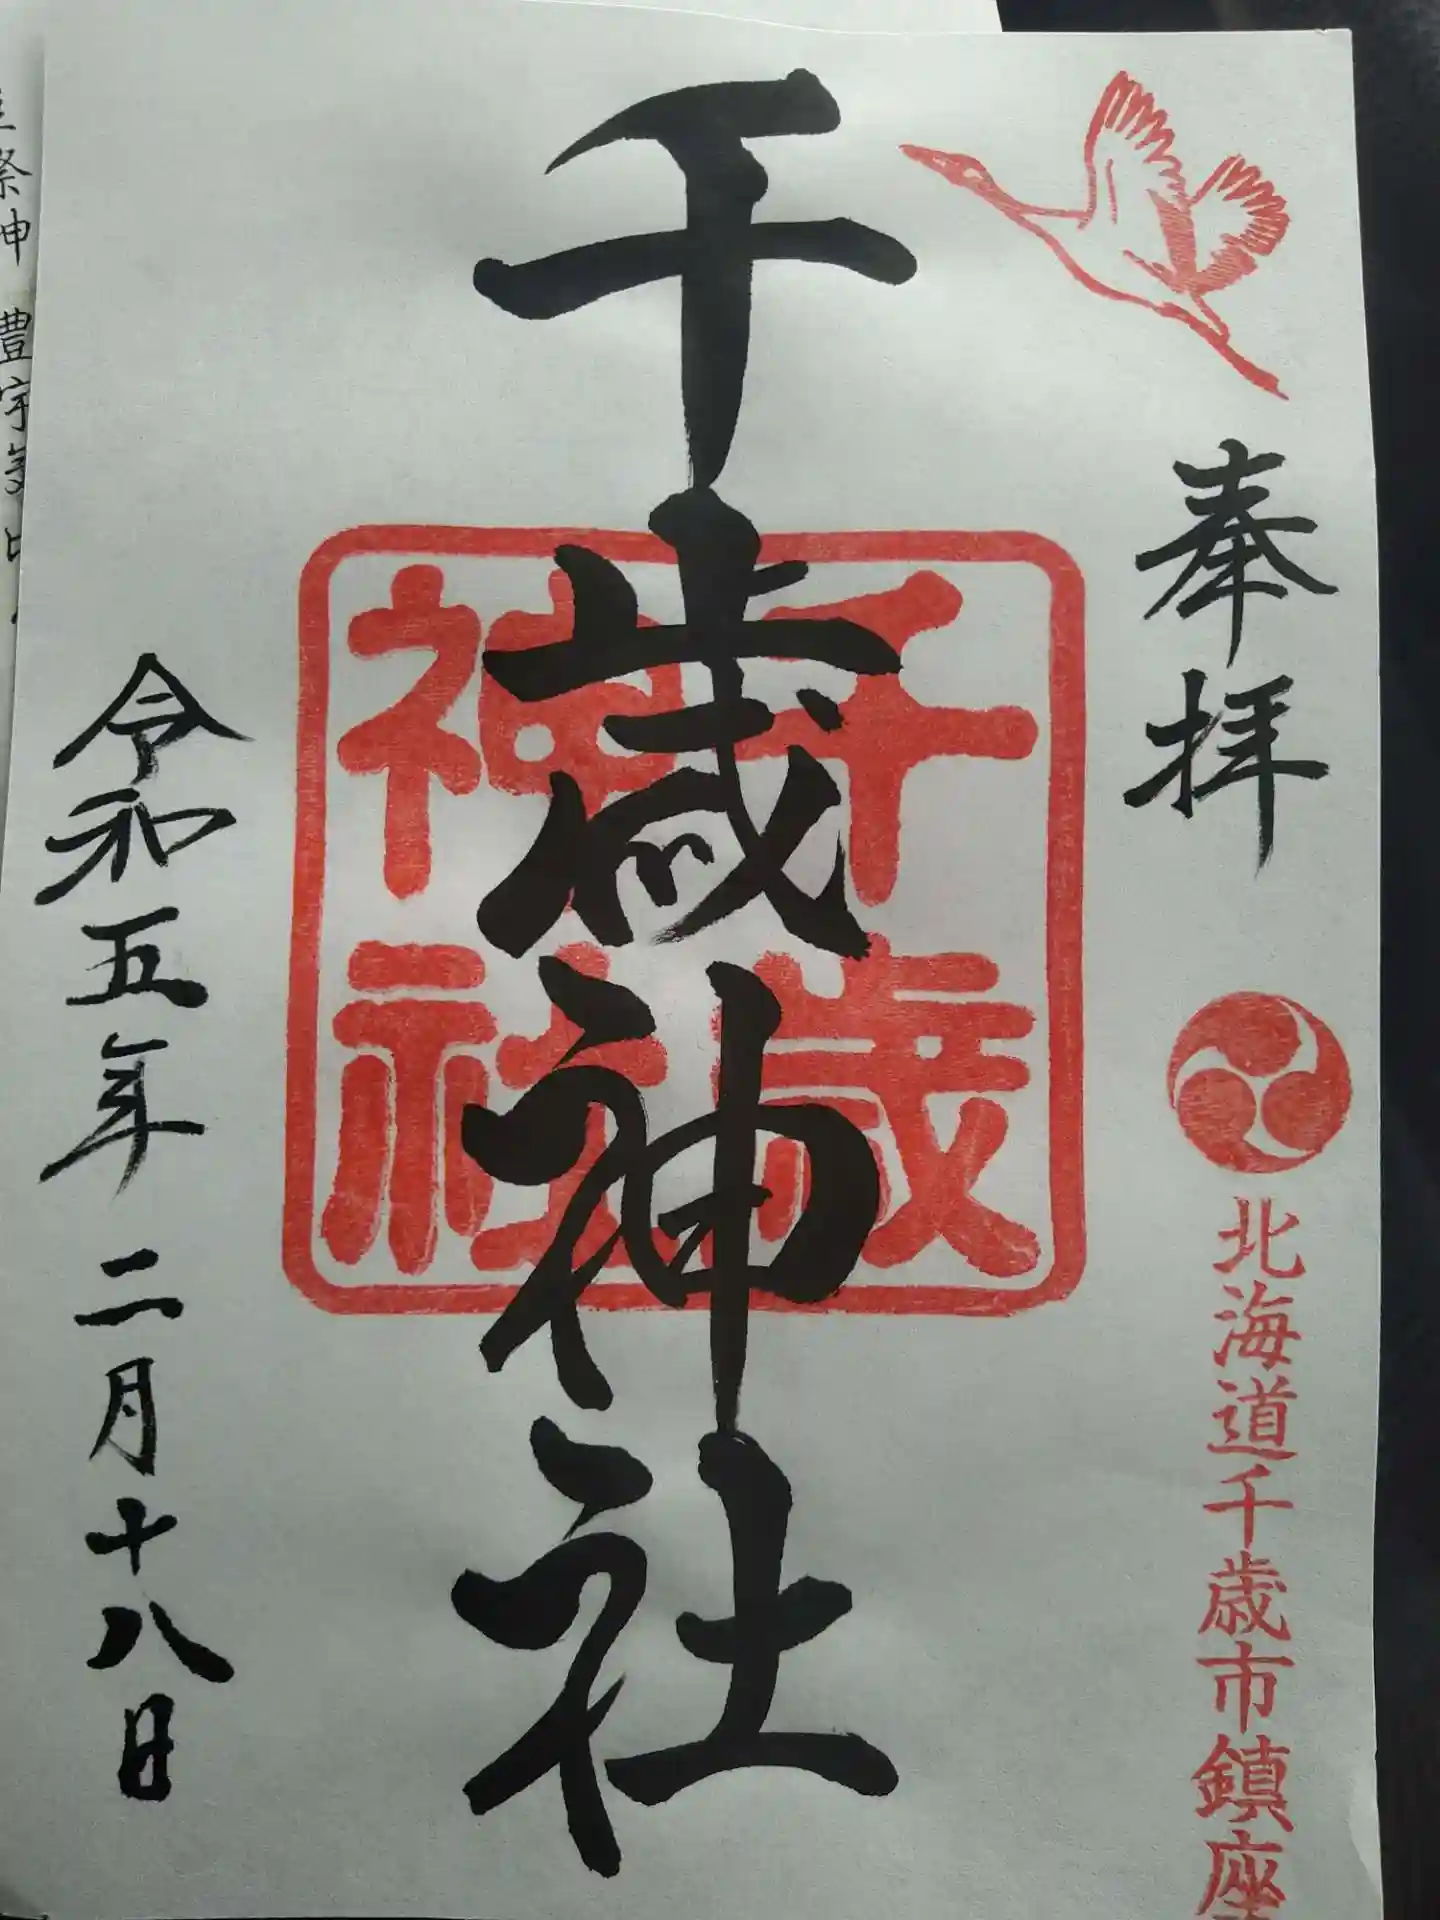 奉拝
北海道千歳市鎮座
千歳神社
千歳
神社
令和五年 二月十八日
祭神 豊宇